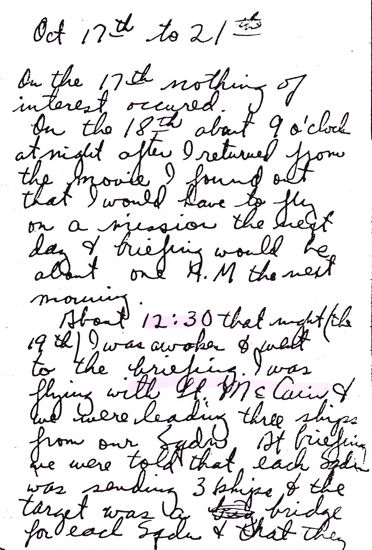 Oct 17th to 21th
On the 17th nothing of
interest occured.
On the 18th about 9 o'clock
at night after I returned from
the movie I found out
that I would have to fly
on a mission the next
day & briefing would be
about one A.M the next
morning.
About 12:30 that night (the
19th) I was awoken & went
to the briefing. I was
flying with Lt. McCain &
we were leading three ships
from our Sqdn. At briefing
we were told that each Sqdn
was sending 3 ships & the
target was a bridge
for each Sqdn & that they